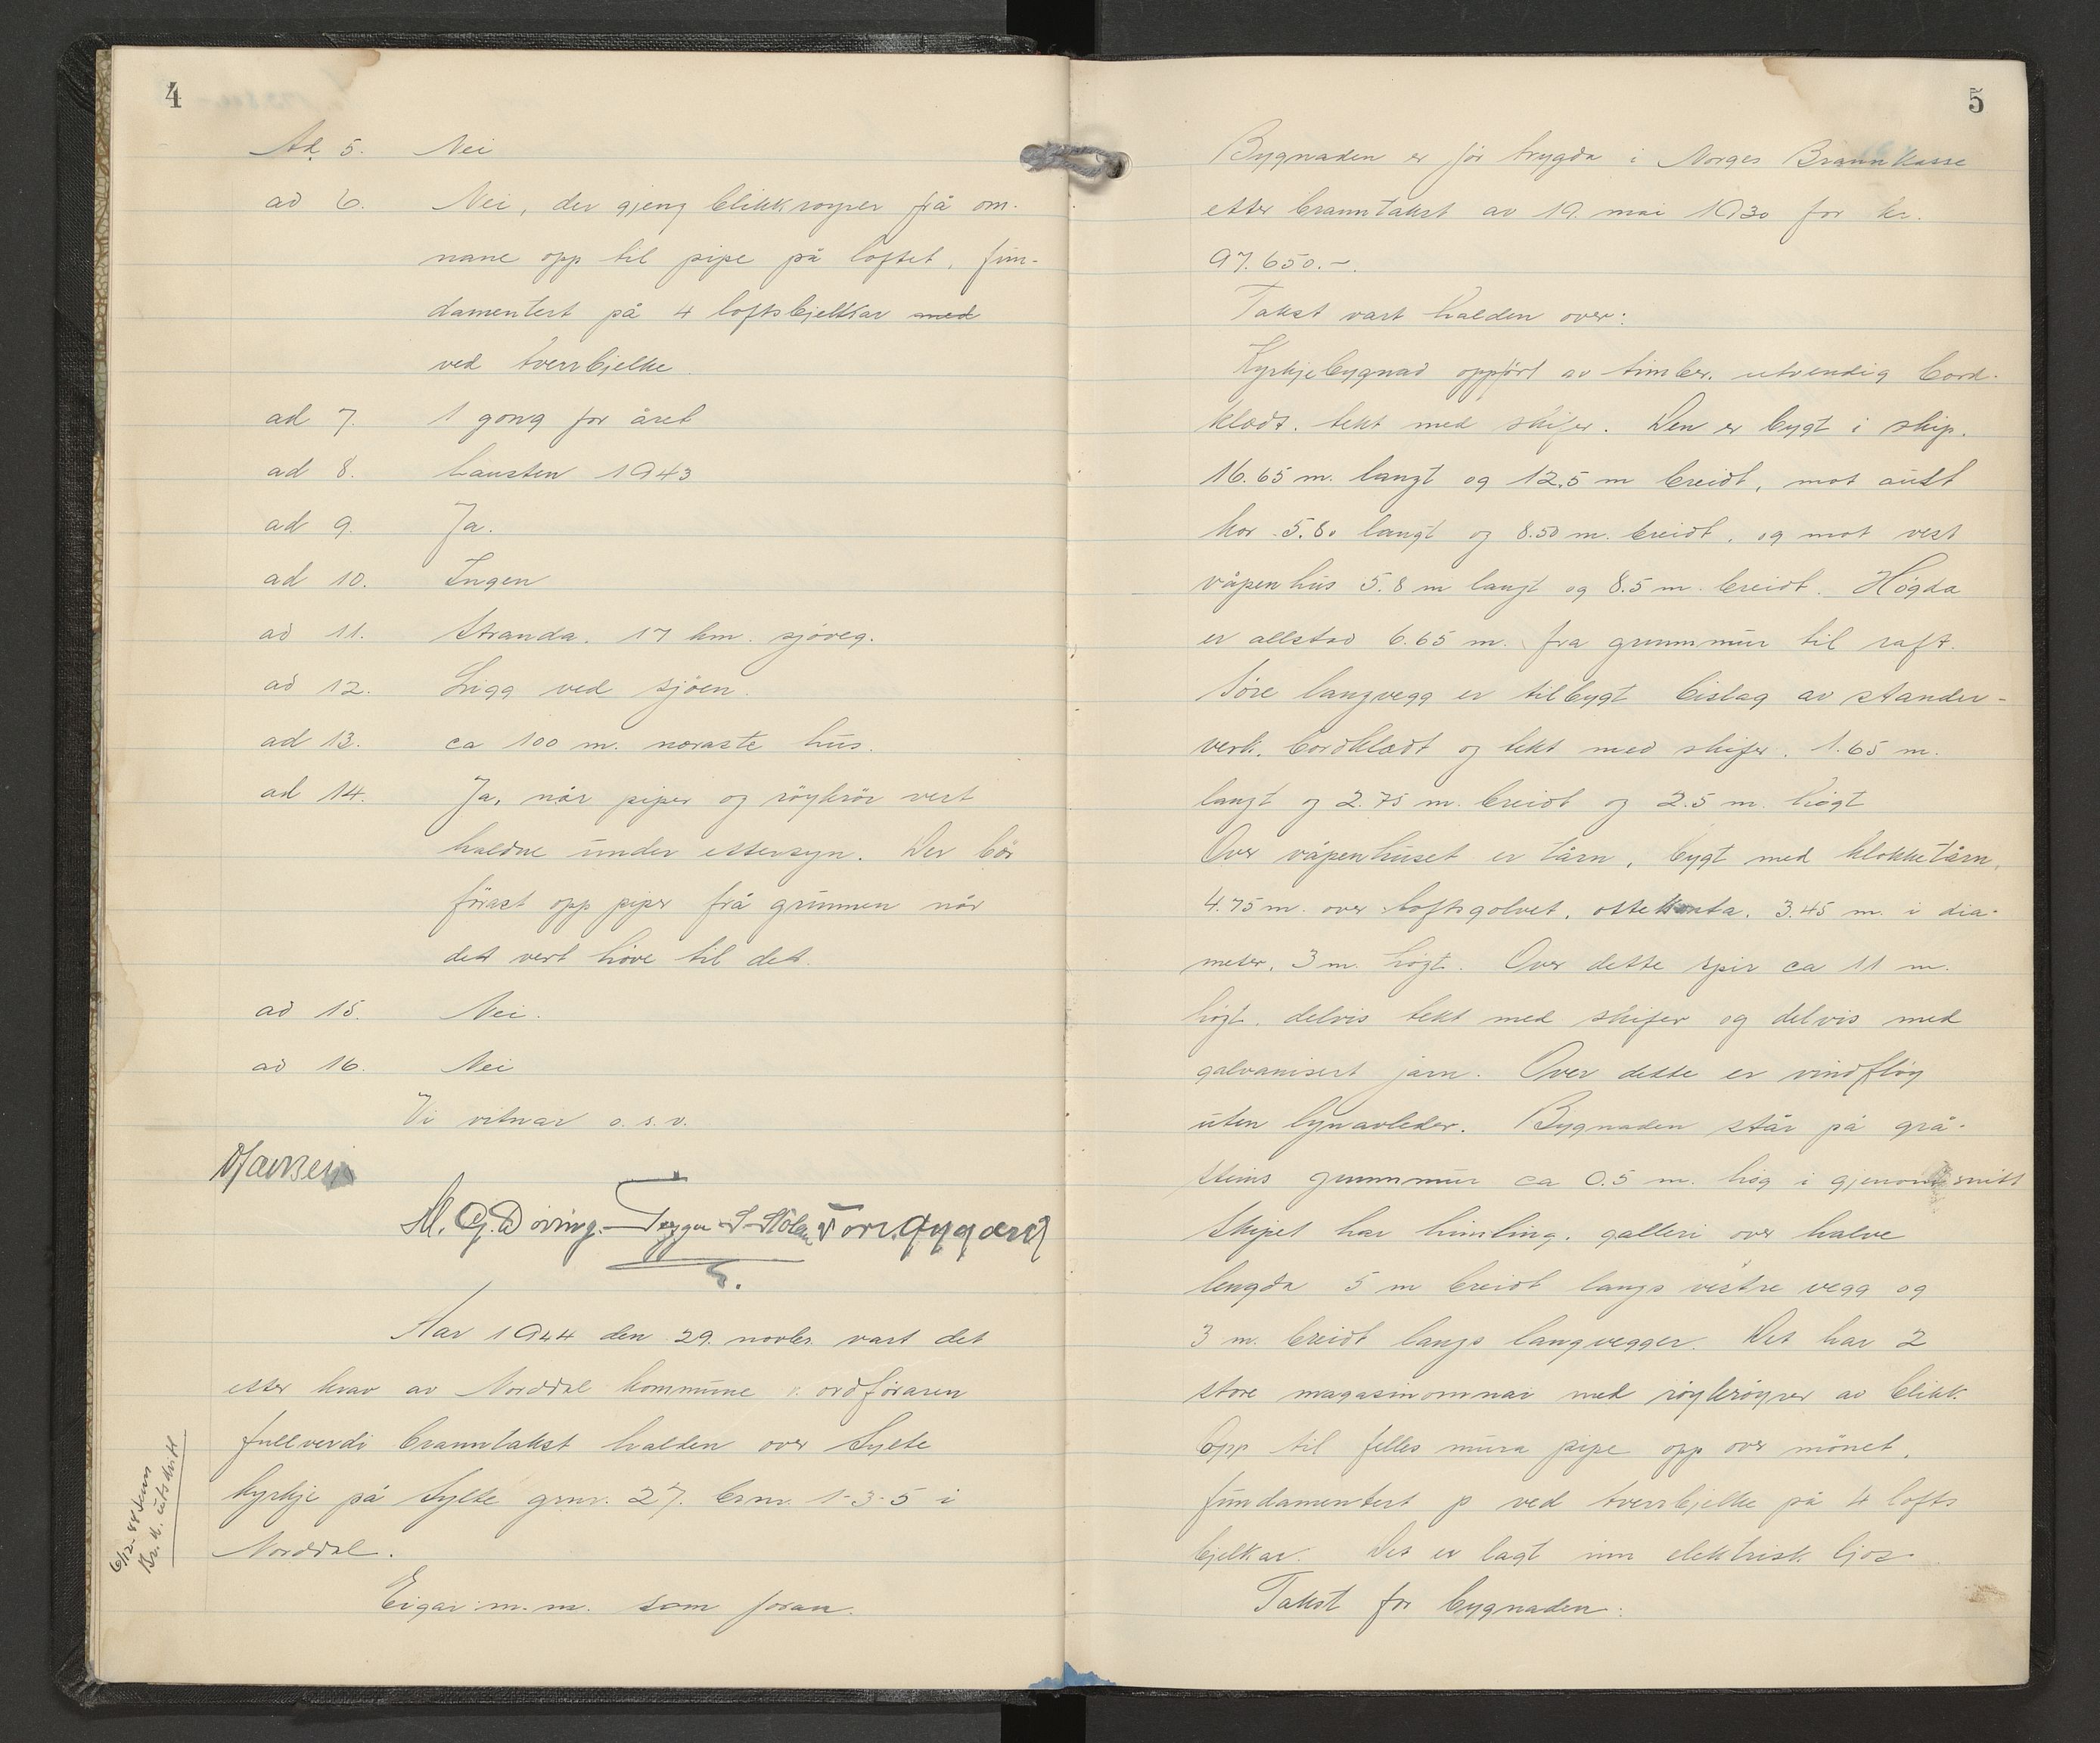 4
Ad 5. Nei
ad 6. Nei, der gjeng blikkrøyrer frå om-
nane opp til pipe på loftet, fun-
damentert på 4 loftsbjelkar med
ved tverrbjelke.
ad 7. 1 gong for året
ad 8. Hausten 1943
ad 9. Ja.
ad 10. Ingen
ad 11. Stranda. 17 km. sjøveg.
ad 12. Ligg ved sjøen.
ad 13. ca 100 m. næraste hus.
ad 14. Ja, når piper og röykrör vert
haldne under ettersyn. Der bör
förast opp piper frå grunnen når
det vert höve til det.
ad 15. Nei.
ad 16. Nei
Vi vitnar o.s.v.
M. G. Döving.
Aar 1944 den 29. novbr. vart det
etter krav av Norddal kommune v. ordföraren
fullverdi branntakst halden over Sylte
kyrkje på Sylte grnr. 27. brnr. 1-3-5 i
Norddal.
Eigar m.m. som foran.
6/12-44 Br.k. utskrift
5
Bygnaden er för trygda i Norges Brannkasse
etter branntakst av 19. mai 1930 for kr.
97.650.-.
Takst vart halden over:
Kyrkjebygnad oppfört av timber, utvendig bord-
klædt. tekt med skifer. Den er bygt i skip.
16.65 m. langt og 12.5 m breidt, mot aust
kor 5.80 langt og 8.50 m. breidt, og mot vest
våpenhus 5.8 m langt og 8.5 m. breidt. Högda
er allstad 6.65 m. fra grunnmur til raft.
Söre langvegg er tilbygt bislag av stander-
verk, bordklædt og tekt med skifer. 1.65 m.
langt og 2.75 m. breidt og 2.5 m. högt
Over våpenhuset er tårn, bygt med klokketårn,
4.75 m. over loftsgolvet, ottekanta, 3.45 m. i dia-
meter, 3 m. högt. Over dette spir ca 11 m.
högt, delvis tekt med skifer og delvis med
galvanisert jarn. Over dette er vindflöy
uten lynavleder. Bygnaden står på grå-
steins grunnmur ca 0.5 m. hög i gjenomsnitt
Skipet har himling, galleri over halve
lengda 5 m breidt langs vestre vegg og
3 m. breidt langs langvegger. Det har 2
store magasinomnar med röykröyrer av blikk
Opp til felles mura pipe opp over mönet,
fundamentert p ved tverrbjelke på 4 lofts
bjelkar. Det er lagt inn elektrisk ljos.
Takst for bygnaden: